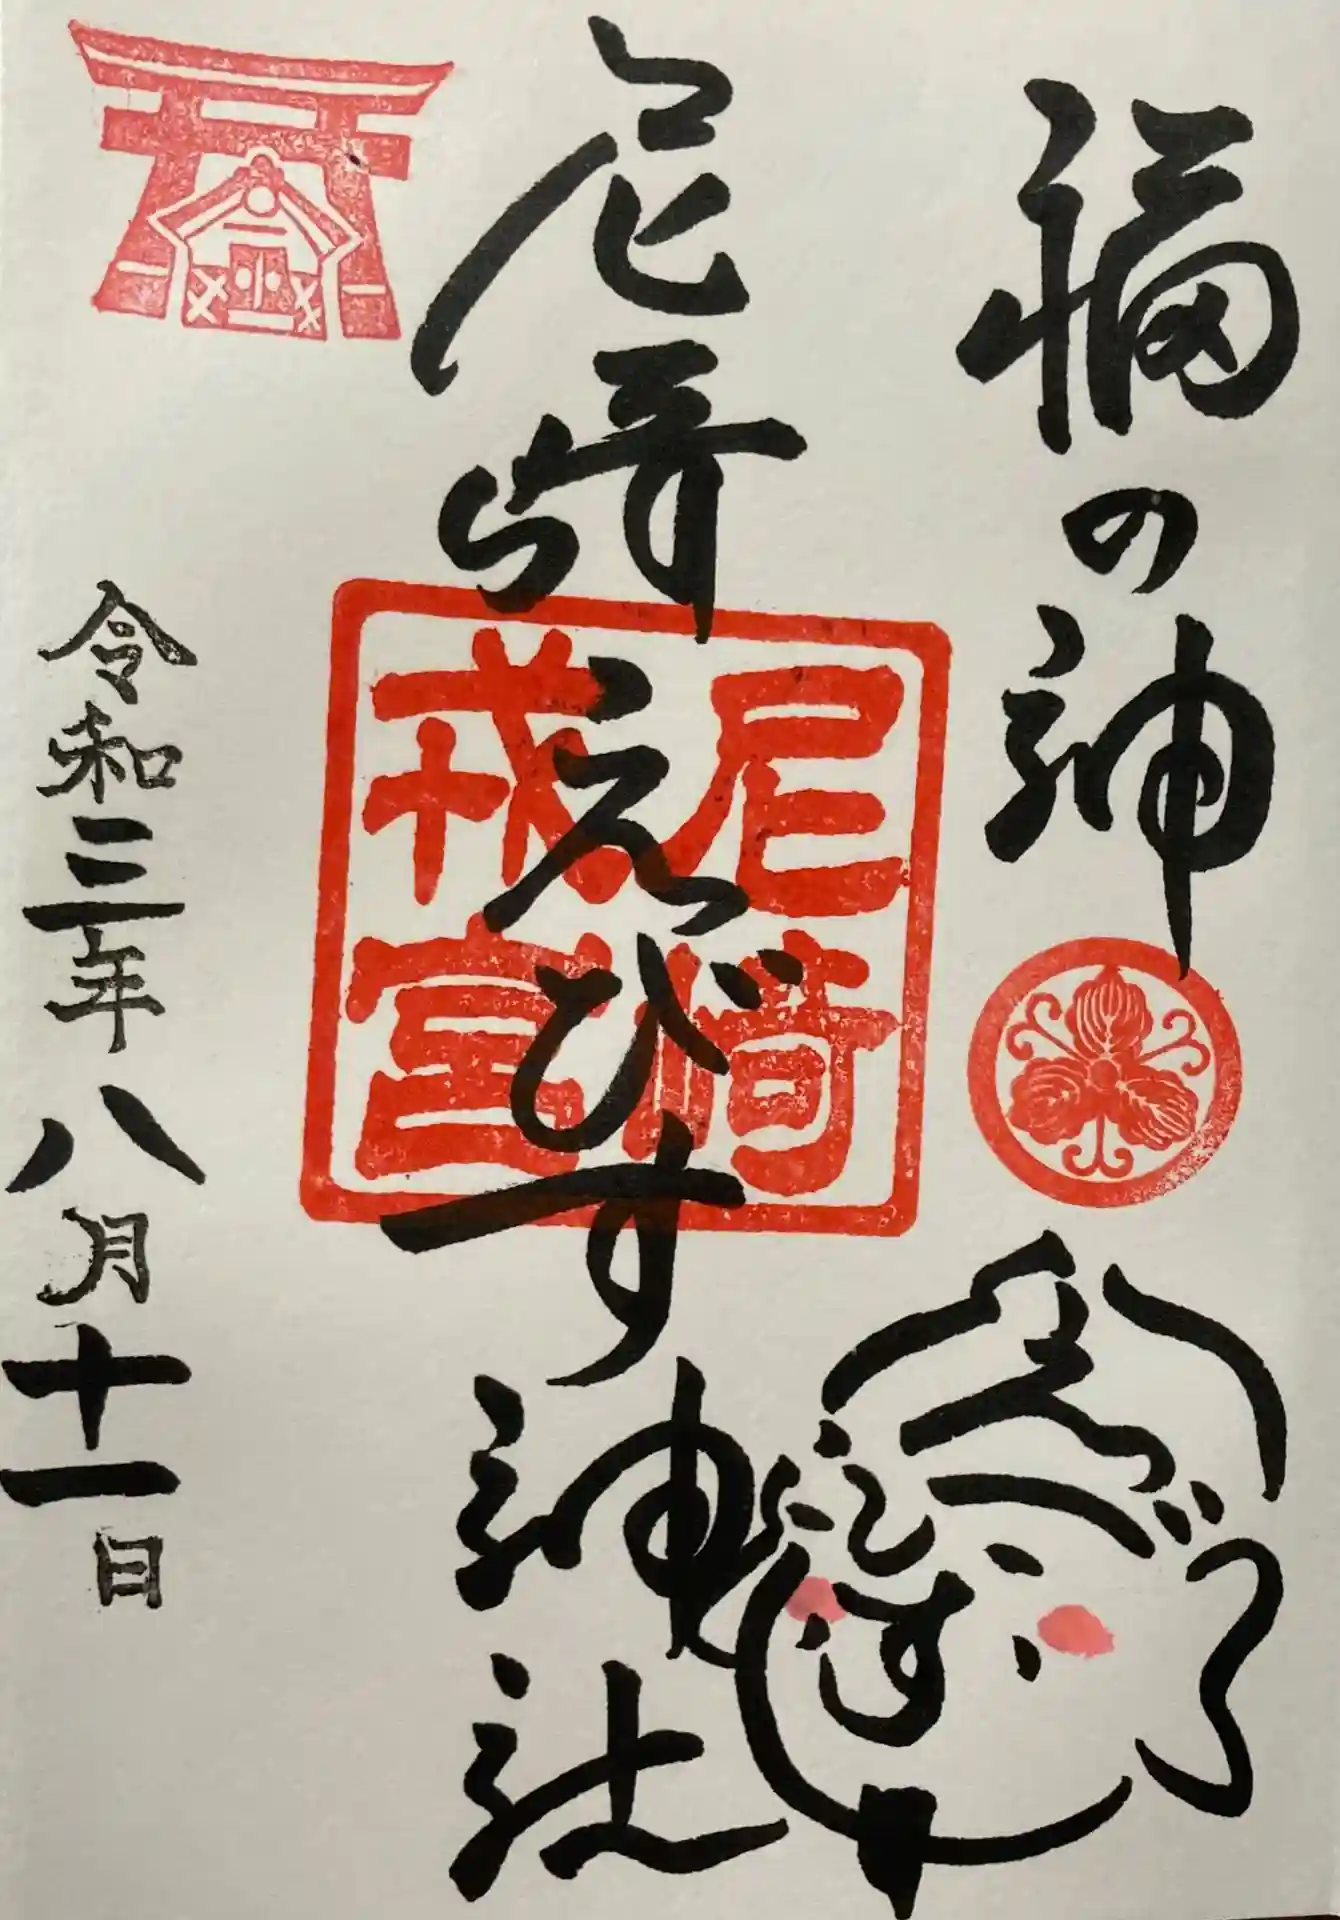 福の神
尼崎えびす神社
尼崎
戎宮
えびす
令和三年八月十一日